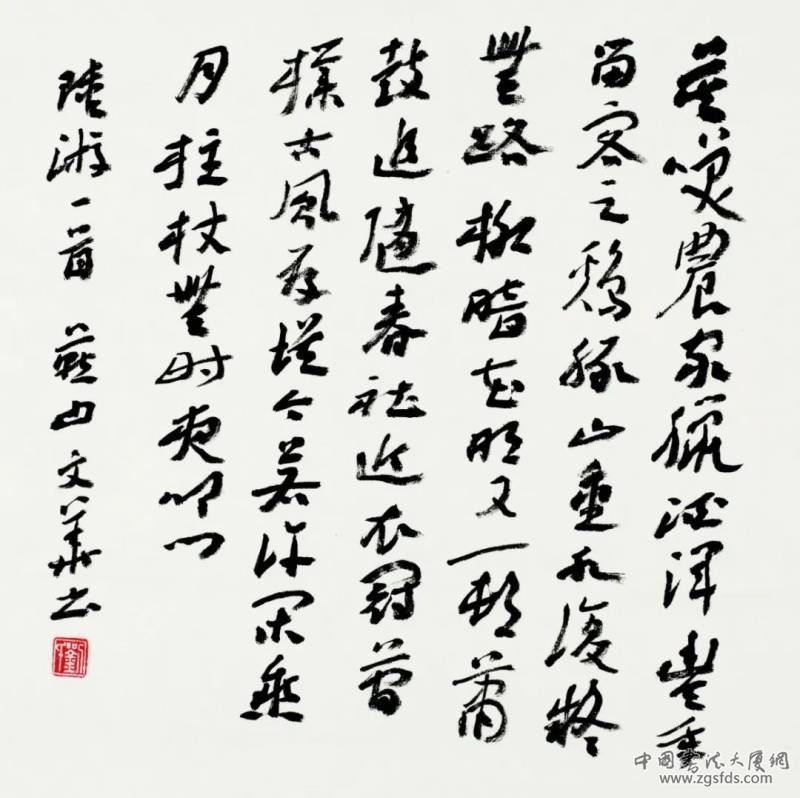 莫咲農家臘酒渾豐年
留客足鷄豚山重水復疑
無路柳暗花明又一邨蕭
鼓追隨春社近衣冠簡
樸古風存從今若許閑乘
月拄杖無时夜叩门
陸游一首 燕山文華书
中國書法大廈網
www.zgsfds.com